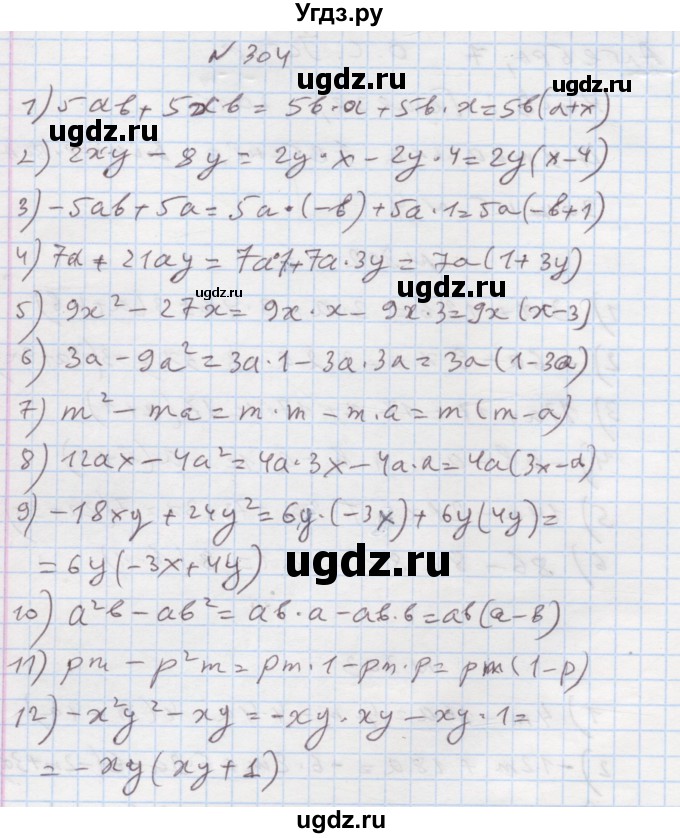 Угдз.ру
N 304
ugdz.ru
1) 5ab + 5xb = 5b·a + 5b·x = 5b(a+x)
ugdz.ru
ugdz.ru
2) 2xy - 8y = 2y·x - 2y·4 = 2y(x-4)
3) -5ab + 5a = 5a·(-b) + 5a·1 = 5a(-b+1)
4) 7a + 21ay = 7a·1 + 7a·3y = 7a(1+3y)
ugdz.ru
ugdz.ru
5) 9x² - 27x = 9x·x - 9x·3 = 9x(x-3)
6) 3a - 9a² = 3a·1 - 3a·3a = 3a(1-3a)
7) m² - ma = m·m - m·a = m(m-a)
8) 12ax - 4a² = 4a·3x - 4a·a = 4a(3x-a)
9) -18xy + 24y² = 6y·(-3x) + 6y(4y) =
= 6y(-3x+4y)
ugdz.ru
10) a²b - ab² = ab·a - ab·b = ab(a-b)
11) pm - p²m = pm·1 - pm·p = pm(1-p)
12) -x²y² - xy = -xy·xy - xy·1 =
= -xy(xy+1)
ugdz.ru
ugdz.ru